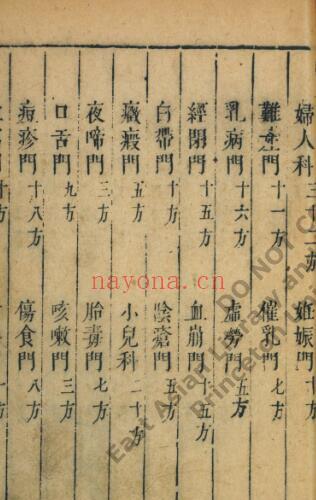 婦人科 三十二方 妊娠門 十方
難產門 十一方 催乳門 七方
乳病門 十六方 虛勞門 五方
經閉門 十五方 血崩門 十五方
白帶門 十方 陰瘡門 五方
癥瘕門 五方 小兒科 二十方
夜啼門 三方 胎毒門 七方
口舌門 九方 咳嗽門 三方
痘疹門 十八方 傷食門 八方
nayona.cn
DO NOT C
East Asian Library and
Princeton Uni